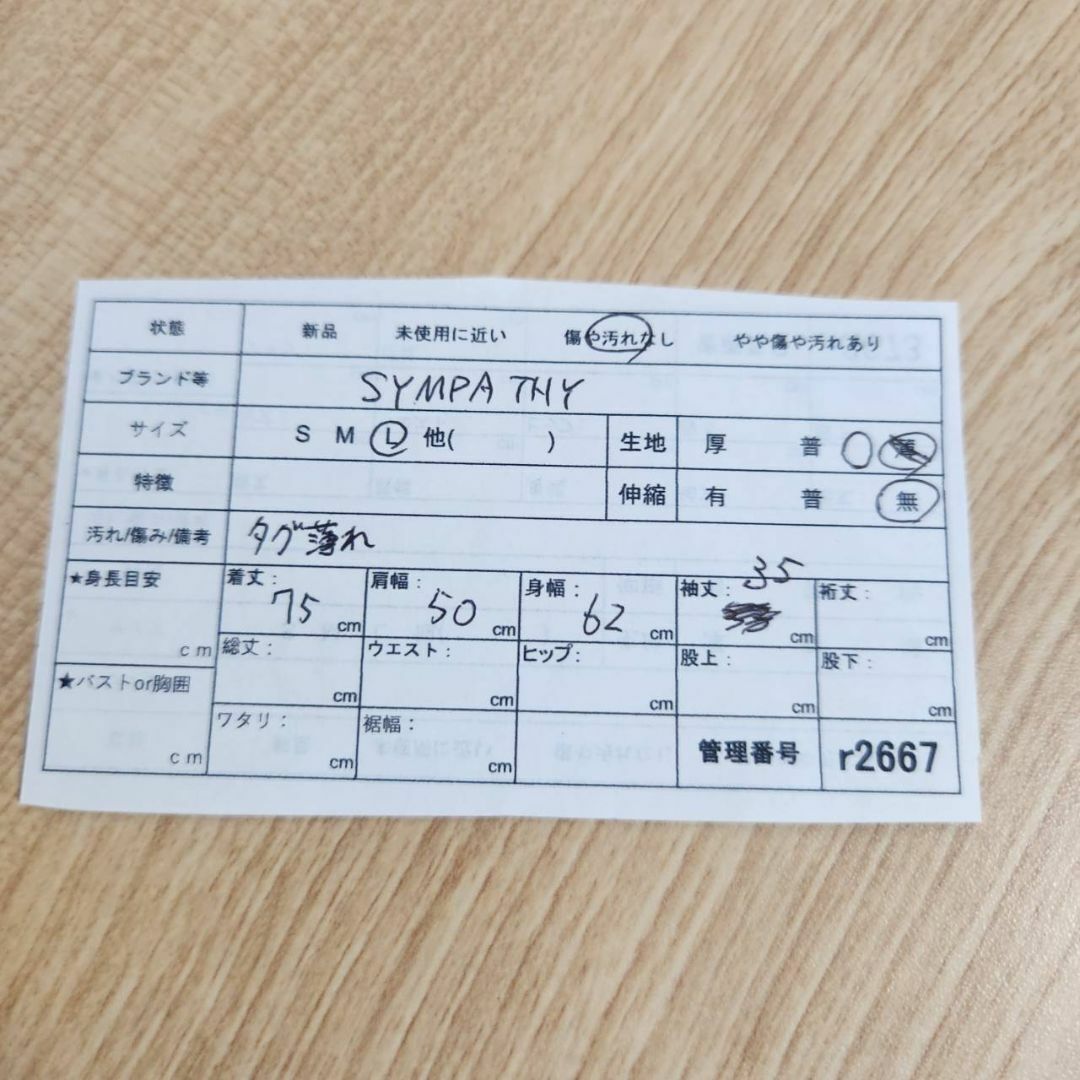 状態 新品 未使用に近い 傷や汚れなし やや傷や汚れあり
ブランド等 SYMPATHY
サイズ S M L 他( ) 生地 厚 普 薄
特徴 伸縮 有 普 無
汚れ/傷み/備考 タグ薄れ
★身長目安 cm 着丈: 75 cm 肩幅: 50 cm 身幅: 62 cm 袖丈: 35 cm 裄丈: cm
総丈: cm ウエスト: cm ヒップ: cm 股上: cm 股下: cm
★バストor胸囲 cm ワタリ: cm 裾幅: cm 管理番号 r2667